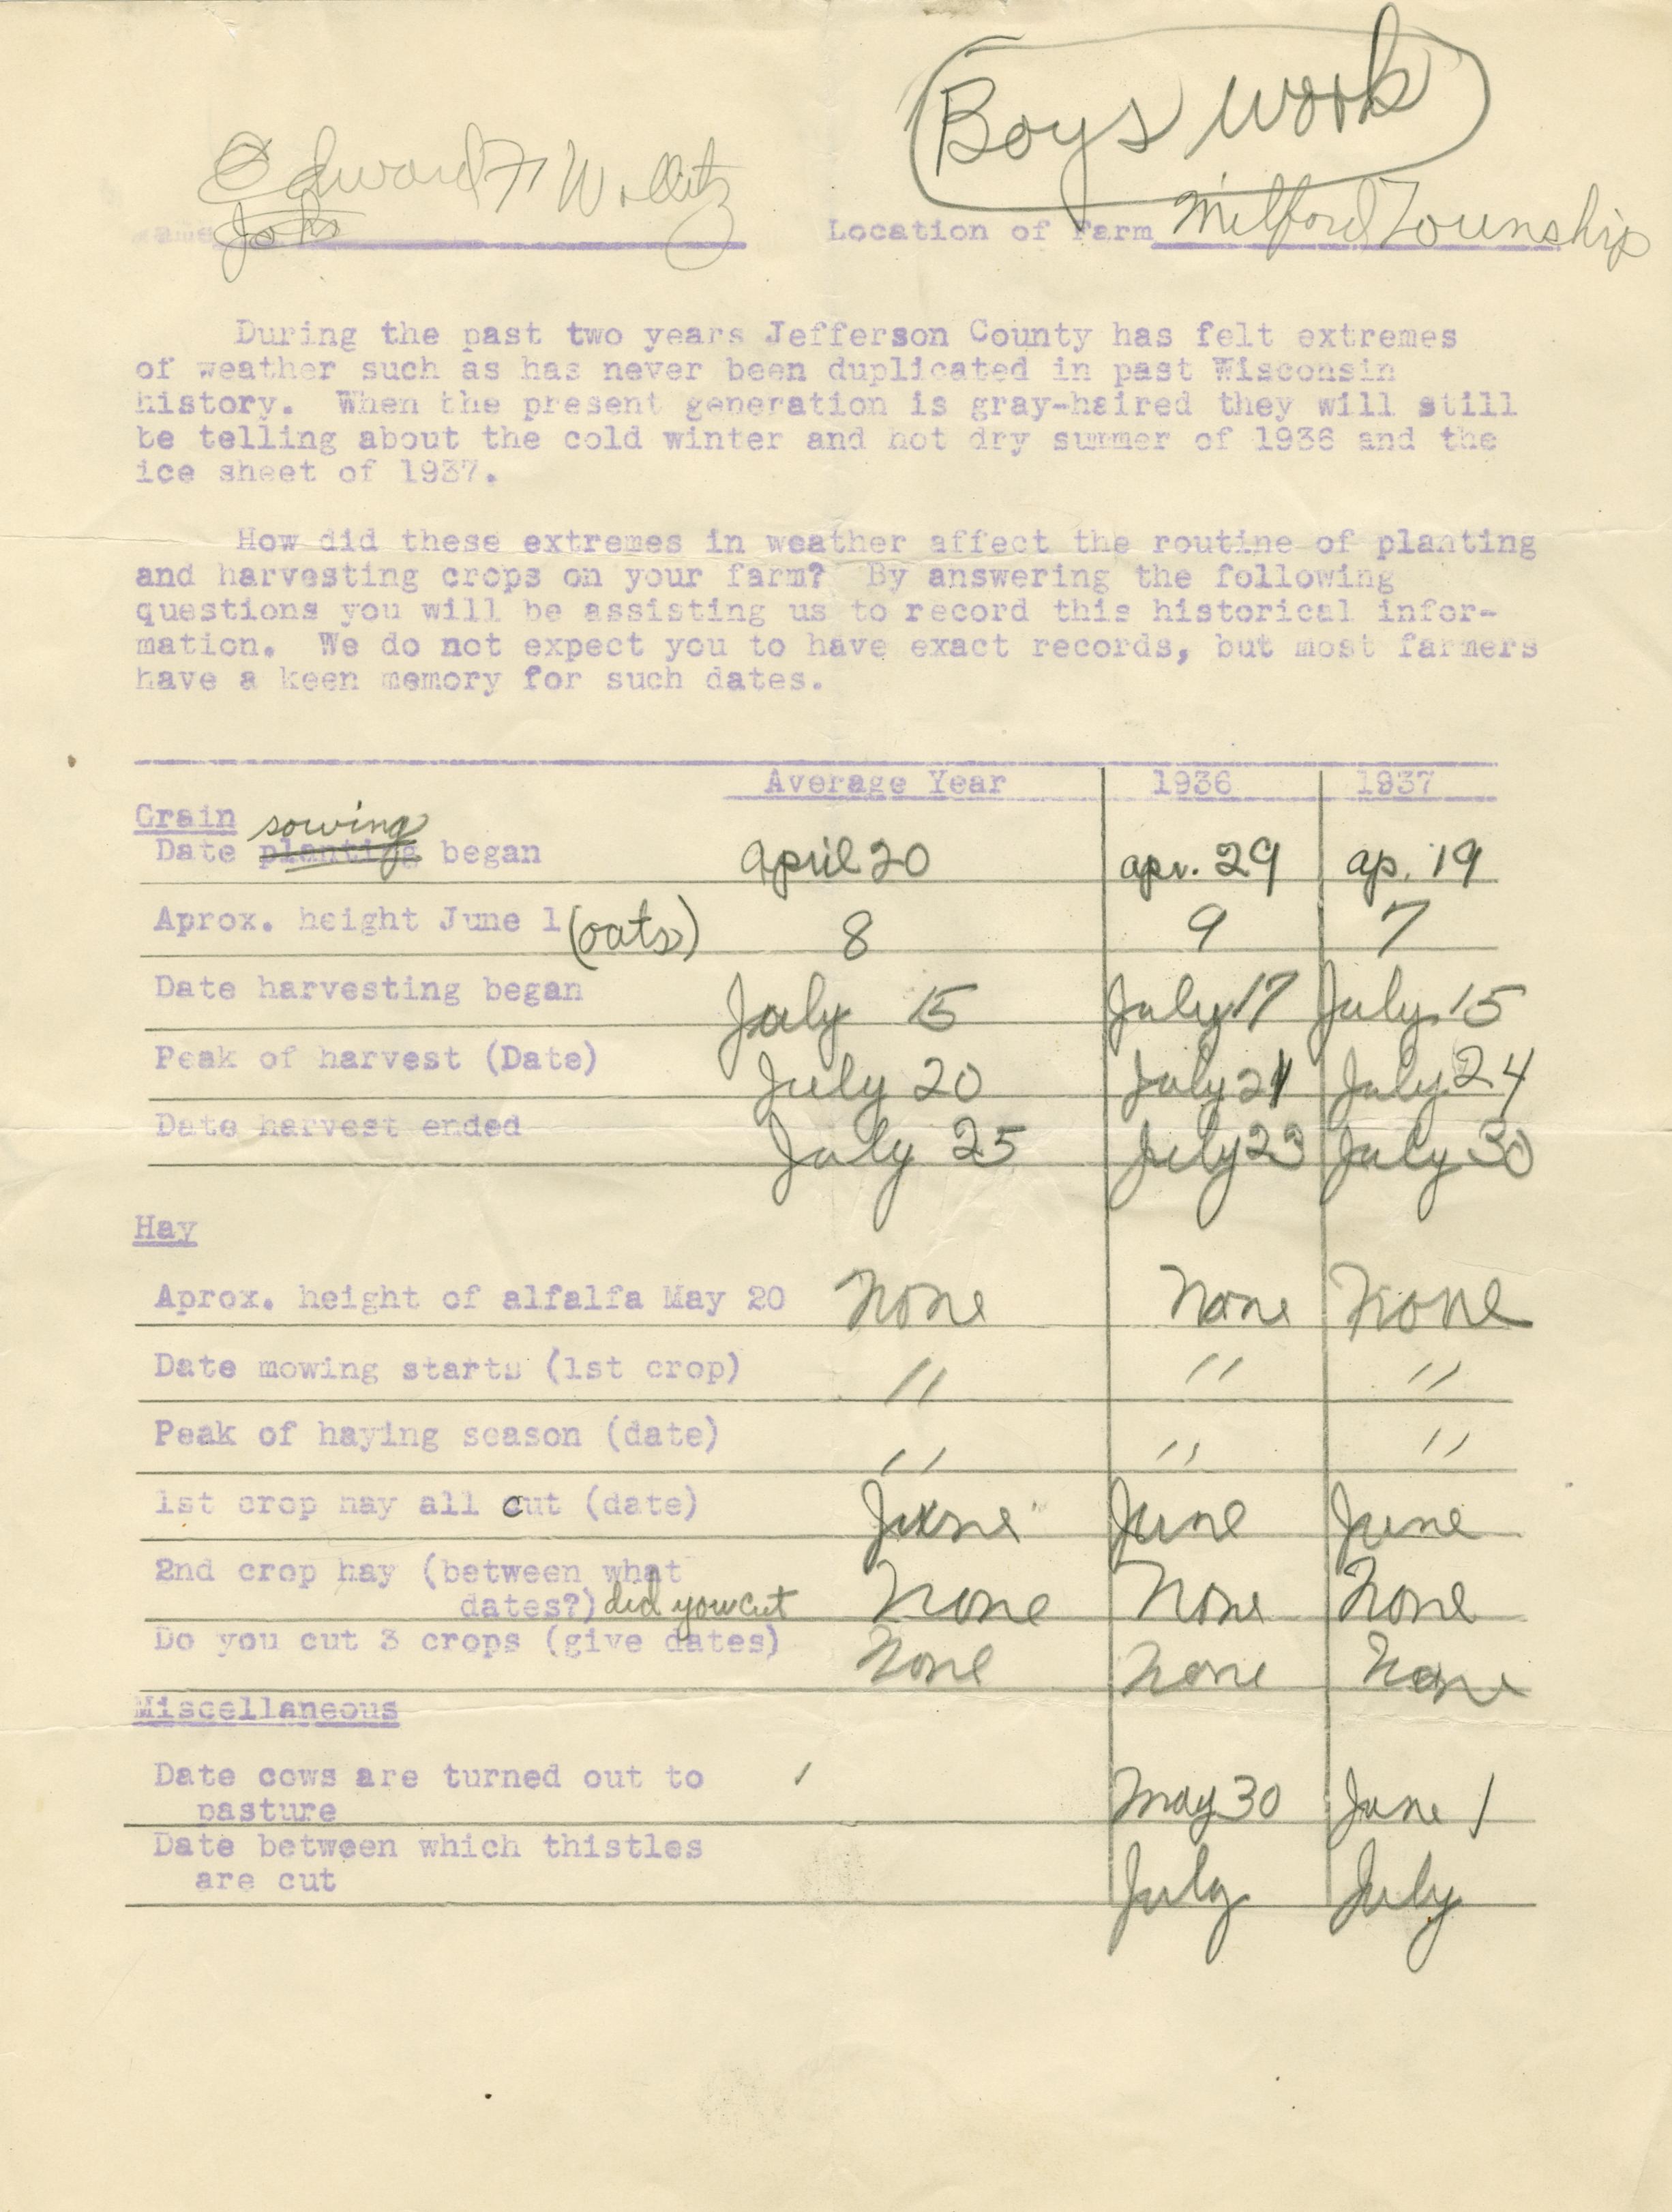 Boys work
Edward F Wollitz
Name John Location of Farm Milford Township
During the past two years Jefferson County has felt extremes
of weather such as has never been duplicated in past Wisconsin
history. When the present generation is gray-haired they will still
be telling about the cold winter and hot dry summer of 1936 and the
ice sheet of 1937.
How did these extremes in weather affect the routine of planting
and harvesting crops on your farm? By answering the following
questions you will be assisting us to record this historical infor-
mation. We do not expect you to have exact records, but most farmers
have a keen memory for such dates.
Average Year 1936 1937
Grain
sowing
Date planting began April 20 apr. 29 ap. 19
Aprox. height June 1 (oats) 8 9 7
Date harvesting began July 15 July 17 July 15
Peak of harvest (Date) July 20 July 21 July 24
Date harvest ended July 25 July 23 July 30
Hay
Aprox. height of alfalfa May 20 None None None
Date mowing starts (1st crop) " " "
Peak of haying season (date) " " "
1st crop hay all cut (date) June June June
2nd crop hay (between what
dates?) did you cut None None None
Do you cut 3 crops (give dates) None None None
Miscellaneous
Date cows are turned out to
pasture May 30 June 1
Date between which thistles
are cut July July